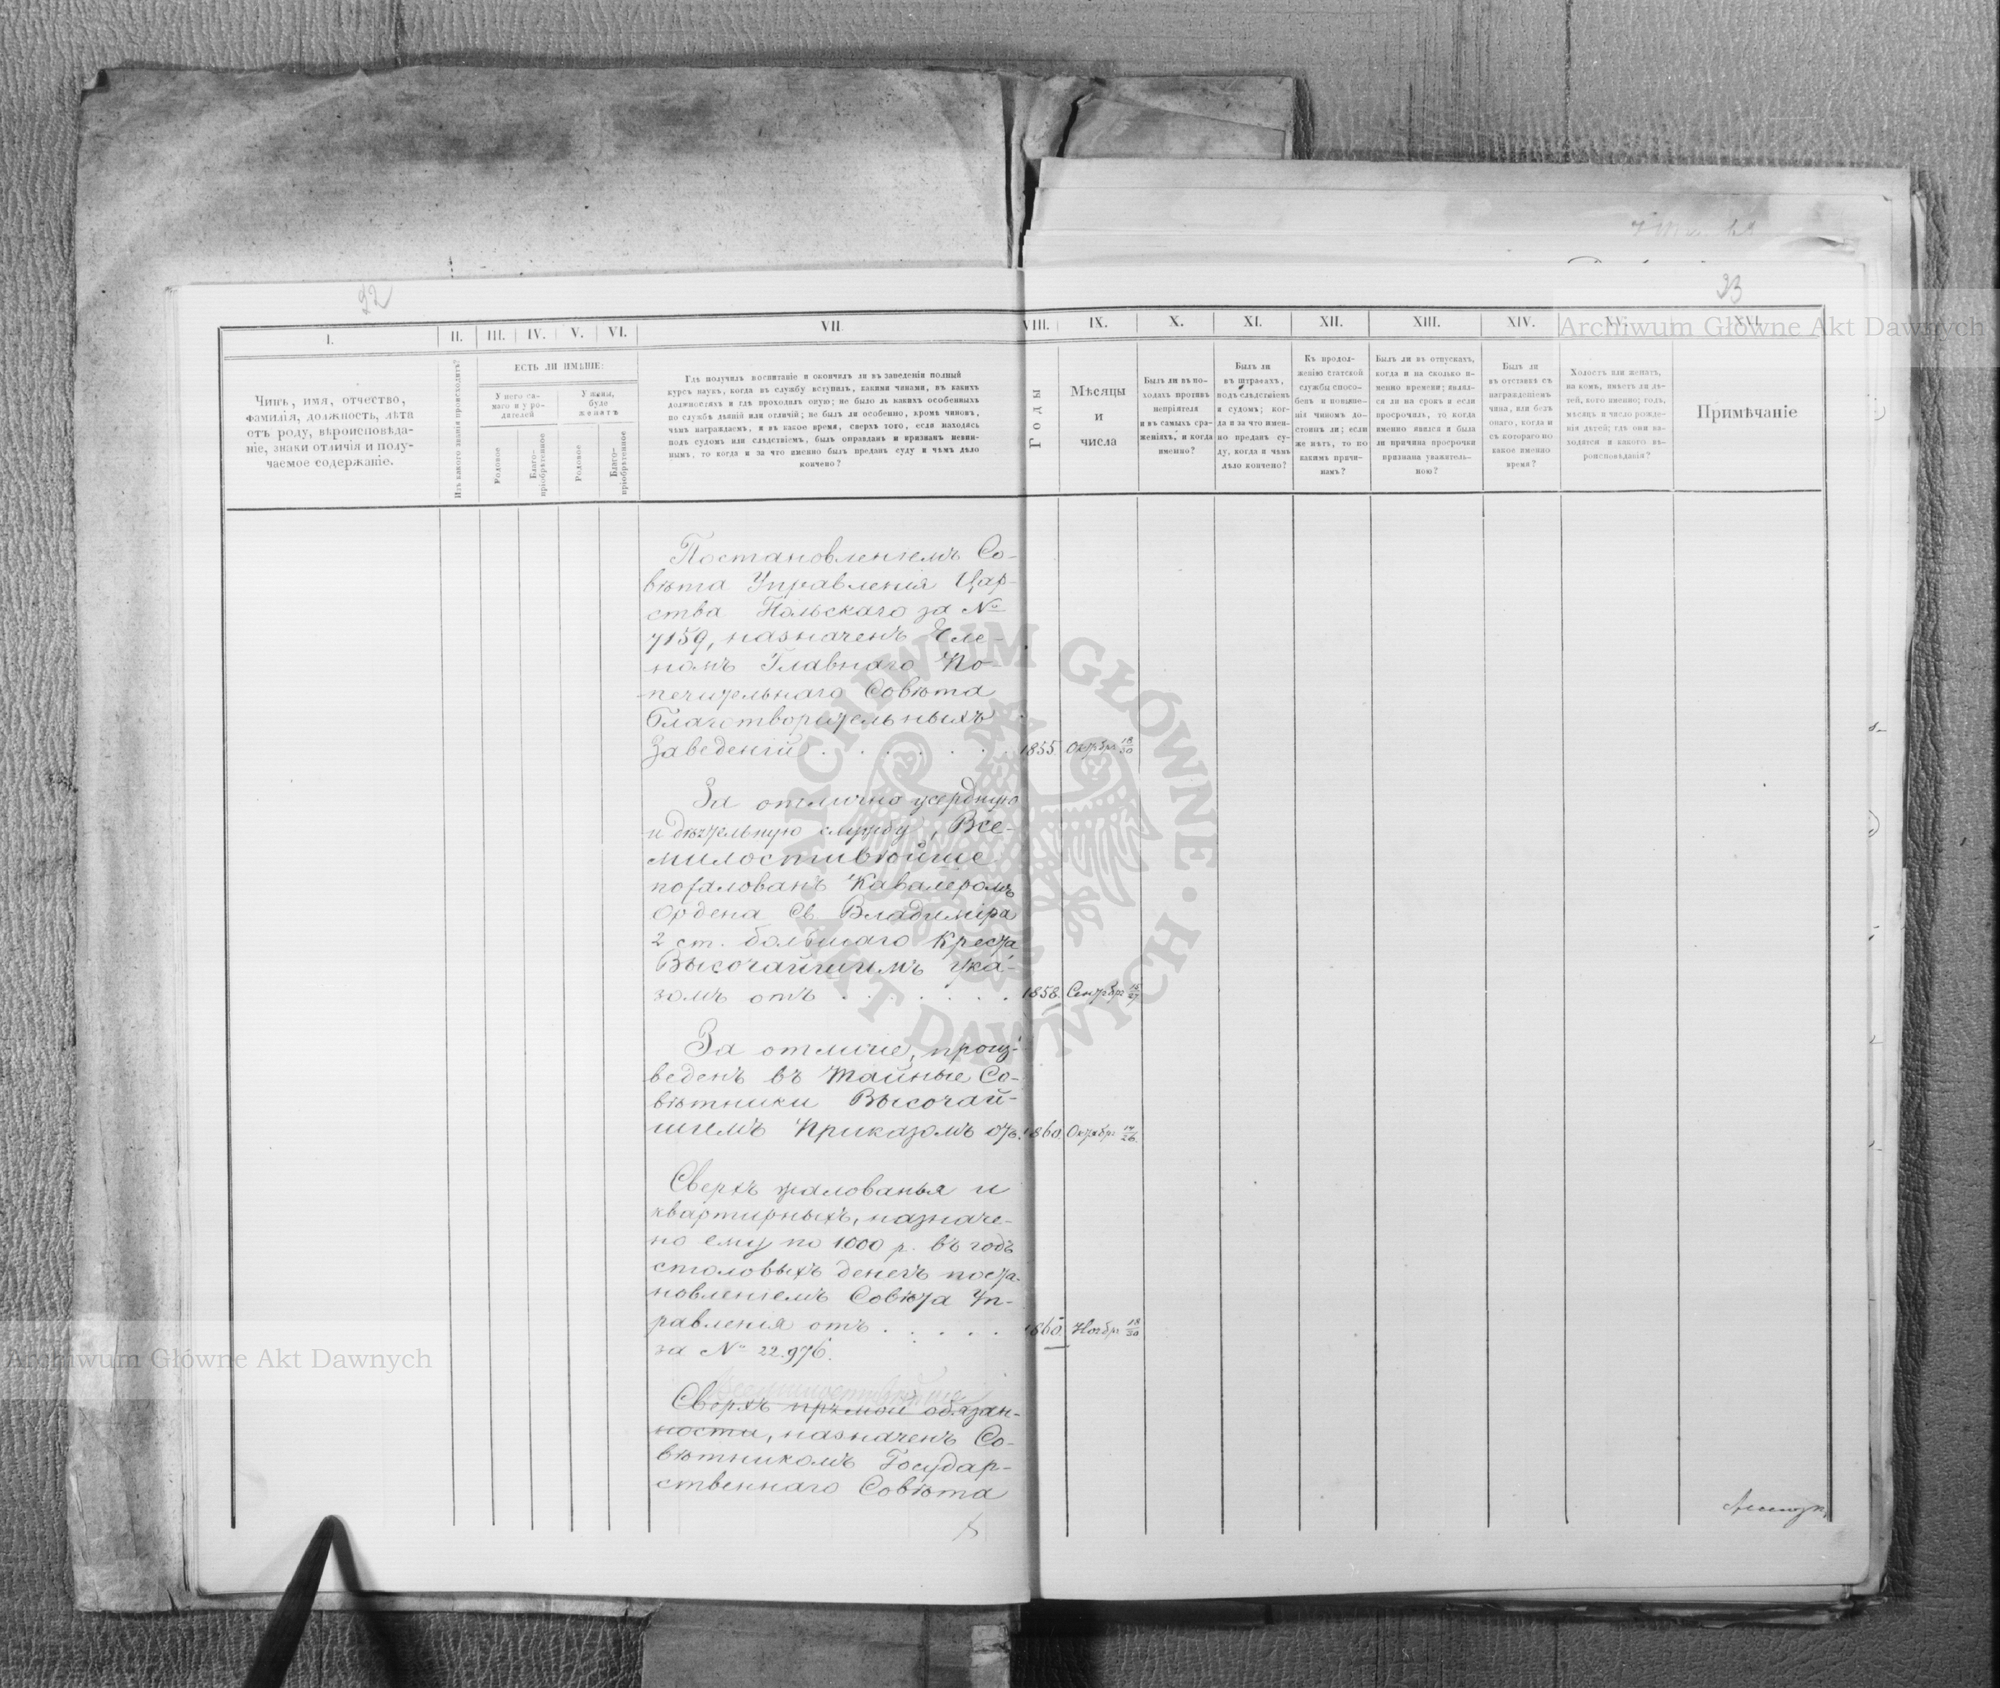 92
93
I.
II.
III.
IV.
V.
VI.
VII.
VIII.
IX.
X.
XI.
XII.
XIII.
XIV.
XV.
XVI.
Чинъ, имя, отчество,
фамилія, должность, лѣта
отъ роду, вѣроисповѣда-
ніе, знаки отличія и полу-
чаемое содержаніе.
Изъ какого званія происходитъ?
ЕСТЬ ЛИ ИМѢНІЕ:
У него са-
маго и у ро-
дителей
У жены,
буде
женатъ
Родовое
Благо-
пріобрѣтенное
Родовое
Благо-
пріобрѣтенное
Гдѣ получилъ воспитаніе и окончилъ ли въ заведеніи полный
курсъ наукъ, когда въ службу вступилъ, какими чинами, въ какихъ
должностяхъ и гдѣ проходилъ оную; не было ль какихъ особенныхъ
по службѣ дѣяній или отличій; не былъ ли особенно, кромѣ чиновъ,
чѣмъ награждаемъ, и въ какое время, сверхъ того, если находясь
подъ судомъ или слѣдствіемъ, былъ оправданъ и признанъ невин-
нымъ, то когда и за что именно былъ преданъ суду и чѣмъ дѣло
кончено?
Годы
Мѣсяцы
и
числа
Былъ ли въ по-
ходахъ противъ
непріятеля
и въ самыхъ сра-
женіяхъ, и когда
именно?
Былъ ли
въ штрафахъ,
подъ слѣдствіемъ
и судомъ; ког-
да и за что имен-
но преданъ су-
ду, когда и чѣмъ
дѣло кончено?
Къ продол-
женію статской
службы спосо-
бенъ и повыше-
нія чиномъ до-
стоинъ ли; если
же нѣтъ, то по
какимъ причи-
намъ?
Былъ ли въ отпускахъ,
когда и на сколько и-
менно времени; являл-
ся ли на срокъ и если
просрочилъ, то когда
именно явился и была
ли причина просрочки
признана уважитель-
ною?
Былъ ли
въ отставкѣ съ
награжденіемъ
чина, или безъ
онаго, когда и
съ котораго по
какое именно
время?
Холостъ или женатъ,
на комъ, имѣетъ ли дѣ-
тей, кого именно; годъ,
мѣсяцъ и число рожде-
нія дѣтей; гдѣ они на-
ходятся и какого вѣ-
роисповѣданія?
Примѣчаніе
Постановленіемъ Со-
вѣта Управленія Цар-
ства Польскаго за №
7159, назначенъ Чле-
номъ Главнаго По-
печительнаго Совѣта
благотворительныхъ
Заведеній . . . . . . . 1855 Октябр 18/30
За отлично усердную
и дѣятельную службу, Все-
милостивѣйше
пожалованъ Кавалеромъ
Ордена Св Владиміра
2 ст. большаго Креста
Высочайшимъ Ука-
зомъ отъ . . . . . . . 1858. Сентябр 15/27
За отличіе, произ-
веденъ въ Тайные Со-
вѣтники Высочай-
шимъ Приказомъ отъ. 1860. Октябр 14/26.
Сверхъ жалованья и
квартирныхъ, назначе-
но ему по 1000 р. въ годъ
столовыхъ денегъ поста-
новленіемъ Совѣта Уп-
равленія отъ . . . . . 1860. Ноябр 18/30
за № 22.976.
Всемилостивѣйше
Сверхъ прямой обязан-
ности, назначенъ Со-
вѣтникомъ Государ-
ственнаго Совѣта
Archiwum Główne Akt Dawnych
Archiwum Główne Akt Dawnych
ARCHIWUM GŁÓWNE AKT DAWNYCH